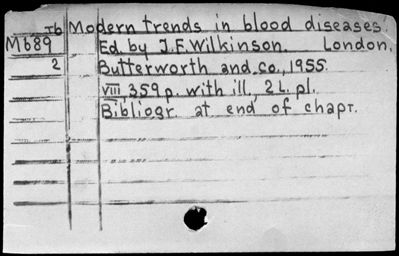 Ib Modern trends in blood diseases
M689 Ed. by J.F. Wilkinson. London,
2 Butterworth and Co., 1955.
VIII 359 p. with ill., 2 L. pl.
Bibliogr. at end of chapt.